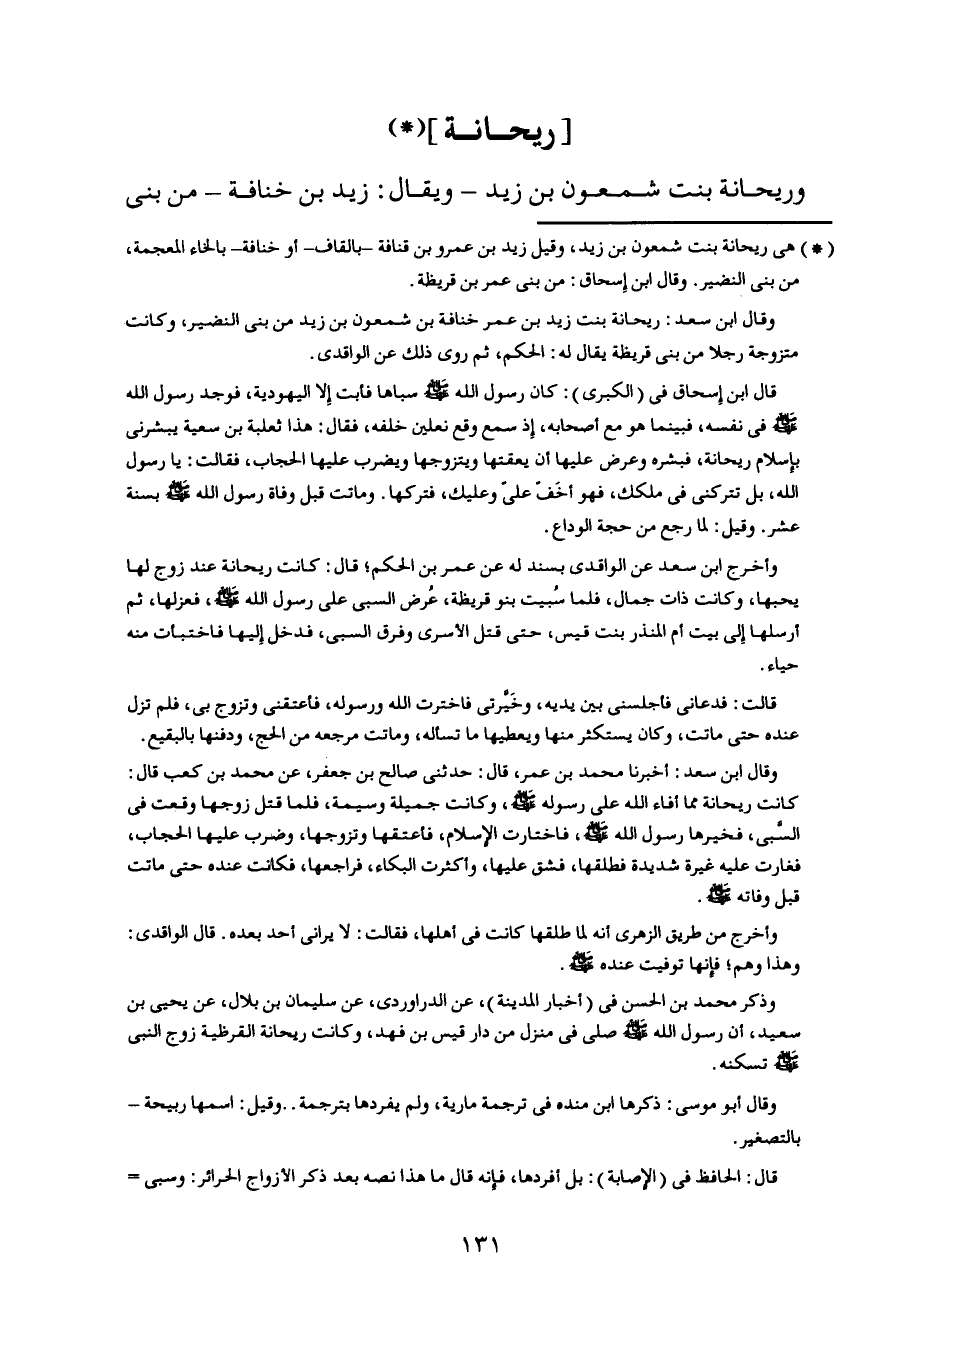 [ ريحـانـة ](*)
وريحـانة بنت شـمـعـون بن زيـد – ويقـال : زيـد بن خنافـة – من بنى
(*) هى ريحانة بنت شمعون بن زيد، وقيل زيد بن عمرو بن قنافة –بالقاف– أو خنافة– بالخاء المعجمة،
من بنى النضير. وقال ابن إسحاق : من بنى عمر بن قريظة.
وقال ابن سعـد : ريحـانة بنت زيد بن عمـر خنافة بن شـمعون بن زيد من بنى النضـير، وكانت
متزوجة رجلا من بنى قريظة يقال له : الحكم، ثم روى ذلك عن الواقدى.
قال ابن إسحاق فى (الكبرى) : كان رسول الله ﷺ سباها فأبت إلا اليهودية، فوجد رسول الله
ﷺ فى نفسه، فبينما هو مع أصحابه، إذ سمع وقع نعلين خلفه، فقال : هذا ثعلبة بن سعية يبشرنى
بإسلام ريحانة، فبشره وعرض عليها أن يعقتها ويتزوجها ويضرب عليها الحجاب، فقالت : يا رسول
الله، بل تتركنى فى ملكك، فهو أخَفّ علىّ وعليك، فتركها. وماتت قبل وفاة رسول الله ﷺ بسنة
عشر. وقيل : لما رجع من حجة الوداع.
وأخـرج ابن سعـد عن الواقدى بسند له عن عمـر بن الحكم؛ قال : كـانت ريحـانة عند زوج لهـا
يحبها، وكانت ذات جمال، فلما سُبيت بنو قريظة، عُرض السبى على رسول الله ﷺ، فعزلها، ثم
أرسلها إلى بيت أم المنذر بنت قيس، حتى قتل الأسرى وفرق السبى، فدخل إليها فاختبأت منه
حياء.
قالت : فدعانى فأجلسنى بين يديه، وخَيَّرتى فاخترت الله ورسوله، فأعتقنى وتزوج بى، فلم تزل
عنده حتى ماتت، وكان يستكثر منها ويعطيها ما تسأله، وماتت مرجعه من الحج، ودفنها بالبقيع.
وقال ابن سعد : أخبرنا محمد بن عمر، قال : حدثنى صالح بن جعفر، عن محمد بن كعب قال :
كانت ريحانة مما أفاء الله على رسوله ﷺ، وكانت جميلة وسيمة، فلما قتل زوجها وقعت فى
السَّبى، فخيرها رسول الله ﷺ، فاختارت الإسلام، فأعتقها وتزوجها، وضرب عليها الحجاب،
فغارت عليه غيرة شديدة فطلقها، فشق عليها، وأكثرت البكاء، فراجعها، فكانت عنده حتى ماتت
قبل وفاته ﷺ.
وأخرج من طريق الزهرى أنه لما طلقها كانت فى أهلها، فقالت : لا يرانى أحد بعده. قال الواقدى :
وهذا وهم؛ فإنها توفيت عنده ﷺ.
وذكر محمد بن الحسن فى (أخبار المدينة)، عن الدراوردى، عن سليمان بن بلال، عن يحيى بن
سعيد، أن رسول الله ﷺ صلى فى منزل من دار قيس بن فهد، وكانت ريحانة القرظية زوج النبى
ﷺ تسكنه.
وقال أبو موسى : ذكرها ابن منده فى ترجمة مارية، ولم يفردها بترجمة. .وقيل : اسمها ربيحة –
بالتصغير.
قال : الحافظ فى (الإصابة) : بل أفردها، فإنه قال ما هذا نصه بعد ذكر الأزواج الحرائر : وسبى =
١٣١